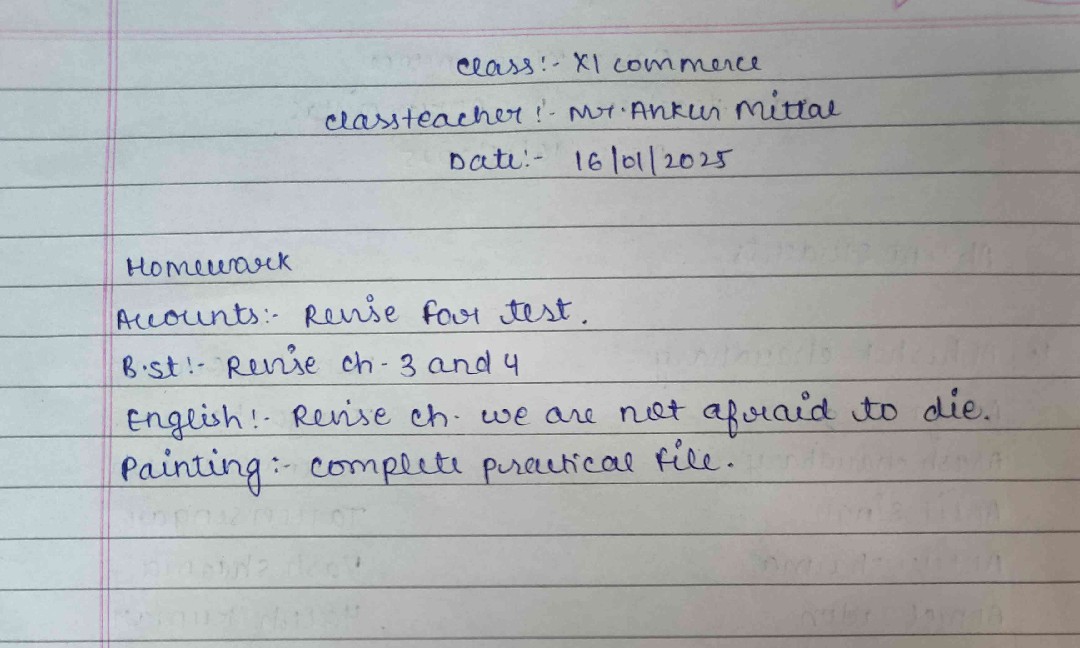 Class:- XI commerce
Classteacher:- Mr. Ankur Mittal
Date:- 16/01/2025
Homework
Accounts:- Revise for test.
B.st:- Revise ch-3 and 4
English:- Revise ch. we are not afraid to die.
Painting:- complete practical file.